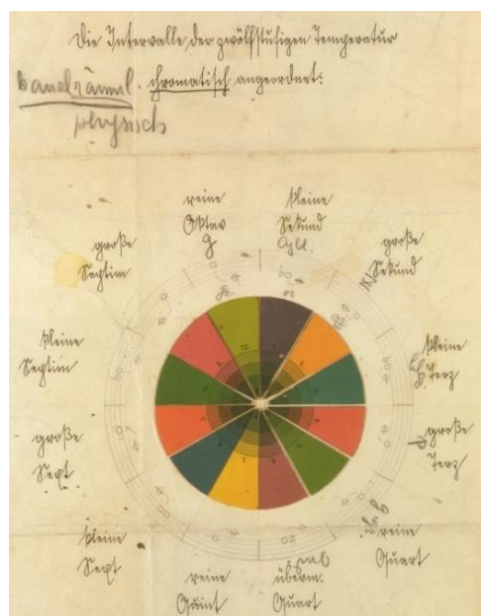 Die Intervalle der zwölfstufigen Temperatur
chromatisch angeordnet:
physisch
reine
Oktav
kleine
Sekund
große
Sekund
kleine
Terz
große
Terz
reine
Quart
überm.
Quart
reine
Quint
kleine
Sext
große
Sext
kleine
Septim
große
Septim